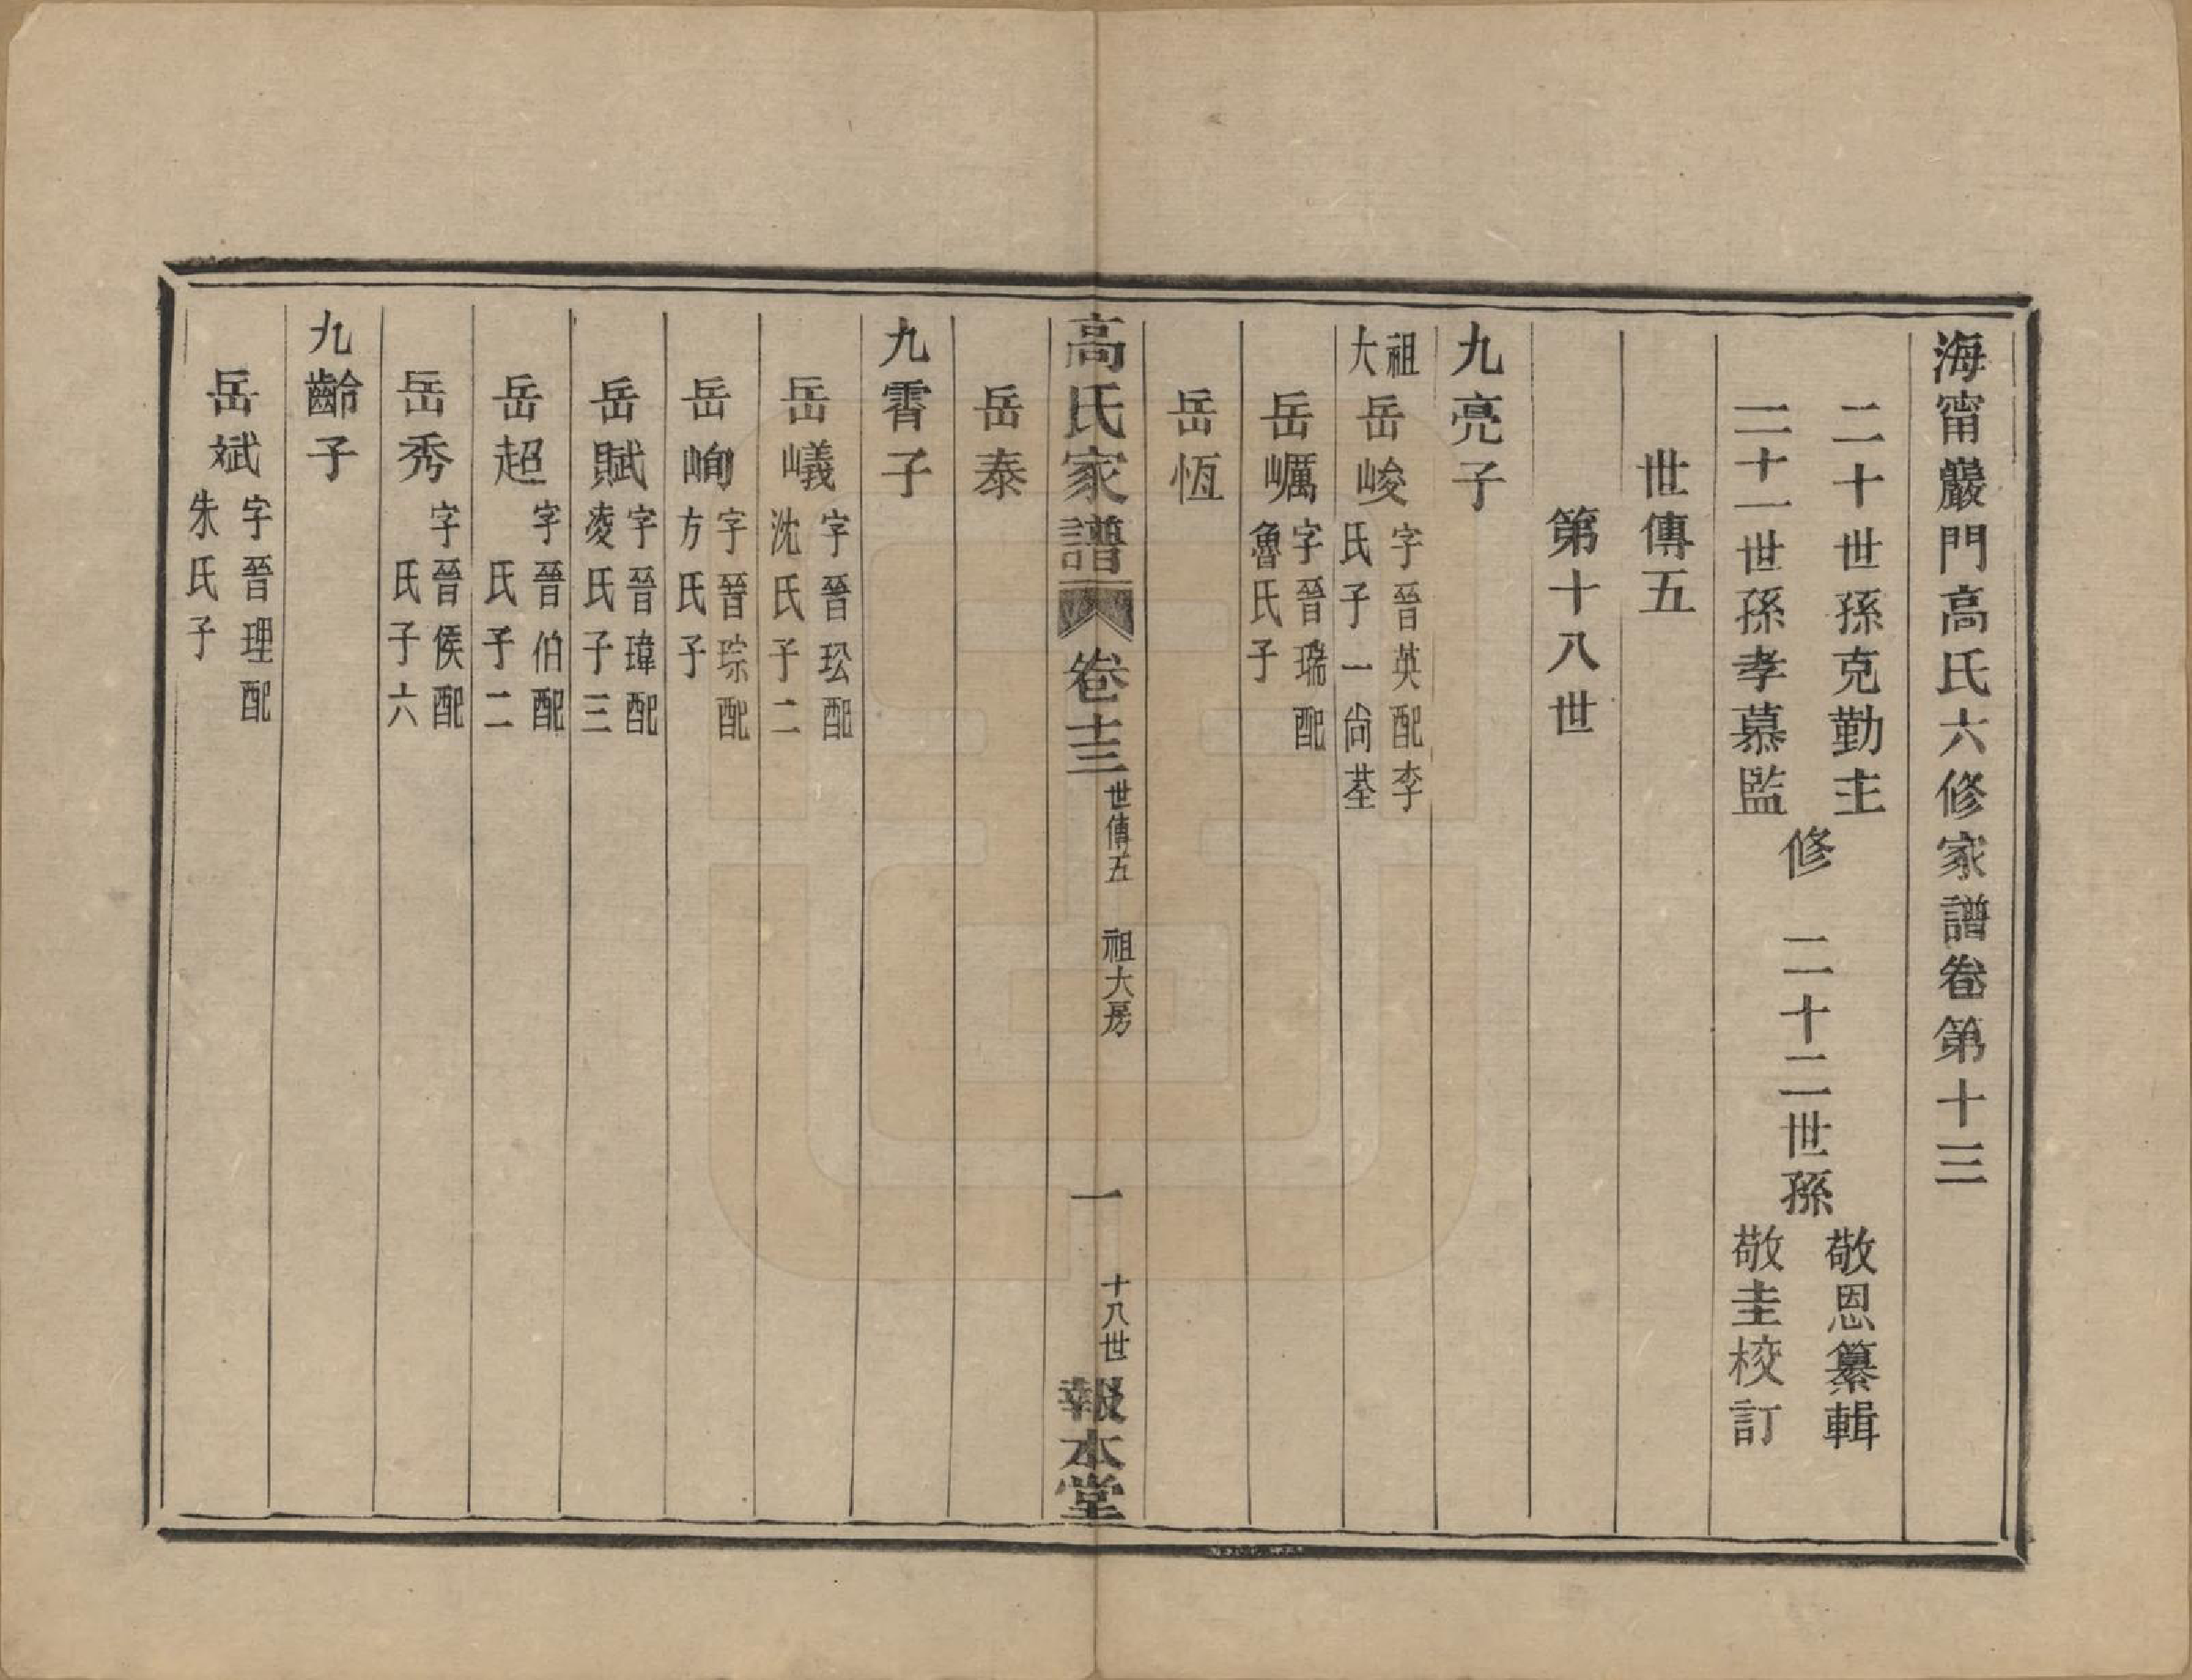 海甯巖門高氏六修家譜卷第十三
二十世孫克勤主
二十一世孫孝慕監
修
二十二世孫
敬恩纂輯
敬圭校訂
世傳五
第十八世
九亮子
祖大
岳峻
字晉英配李
氏子一尚荃
岳㠣
字晉瑞配
魯氏子
岳恆
高氏家譜
卷十三
世傳五
祖大房
一
十八世
報本堂
岳泰
九霄子
岳嶬
字晉玜配
沈氏子二
岳峋
字晉琮配
方氏子
岳賦
字晉瑋配
凌氏子三
岳超
字晉伯配
氏子二
岳秀
字晉侯配
氏子六
九齡子
岳斌
字晉理配
朱氏子